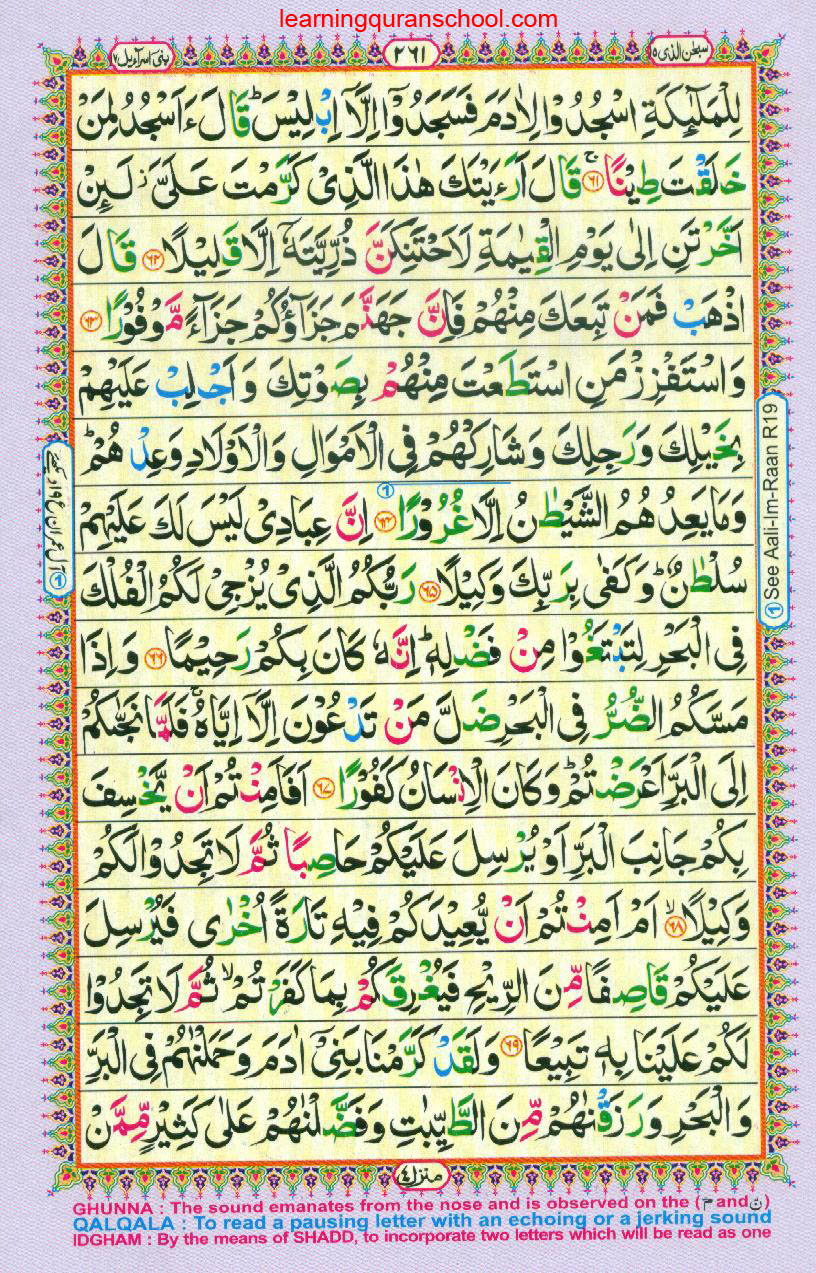 learningquranschool.com
سبحٰن الذى ۱۵
۲۶۱
بنىٓ اسرآءيل ۱۷
لِلْمَلٰٓئِكَةِ اسْجُدُوْا لِاٰدَمَ فَسَجَدُوْٓا اِلَّآ اِبْلِيْسَ ؕ قَالَ ءَاَسْجُدُ لِمَنْ
خَلَقْتَ طِيْنًا ۚ‏﴿۶۱﴾ قَالَ اَرَءَيْتَكَ هٰذَا الَّذِىْ كَرَّمْتَ عَلَىَّ ز لَئِنْ
اَخَّرْتَنِ اِلٰى يَوْمِ الْقِيٰمَةِ لَاَحْتَنِكَنَّ ذُرِّيَّتَهٗۤ اِلَّا قَلِيْلًا ﴿۶۲﴾ قَالَ
اذْهَبْ فَمَنْ تَبِعَكَ مِنْهُمْ فَاِنَّ جَهَنَّمَ جَزَآؤُكُمْ جَزَآءً مَّوْفُوْرًا ﴿۶۳﴾
وَاسْتَفْزِزْ مَنِ اسْتَطَعْتَ مِنْهُمْ بِصَوْتِكَ وَاَجْلِبْ عَلَيْهِمْ
بِخَيْلِكَ وَرَجِلِكَ وَشَارِكْهُمْ فِى الْاَمْوَالِ وَالْاَوْلَادِ وَعِدْهُمْ ؕ
وَمَا يَعِدُهُمُ الشَّيْطٰنُ اِلَّا غُرُوْرًا ﴿۶۴﴾ اِنَّ عِبَادِىْ لَيْسَ لَكَ عَلَيْهِمْ
سُلْطٰنٌ ؕ وَكَفٰى بِرَبِّكَ وَكِيْلًا ﴿۶۵﴾ رَبُّكُمُ الَّذِىْ يُزْجِىْ لَكُمُ الْفُلْكَ
فِى الْبَحْرِ لِتَبْتَغُوْا مِنْ فَضْلِهٖ ؕ اِنَّهٗ كَانَ بِكُمْ رَحِيْمًا ﴿۶۶﴾ وَاِذَا
مَسَّكُمُ الضُّرُّ فِى الْبَحْرِ ضَلَّ مَنْ تَدْعُوْنَ اِلَّآ اِيَّاهُ ۚ فَلَمَّا نَجّٰىكُمْ
اِلَى الْبَرِّ اَعْرَضْتُمْ ؕ وَكَانَ الْاِنْسَانُ كَفُوْرًا ﴿۶۷﴾ اَفَاَمِنْتُمْ اَنْ يَّخْسِفَ
بِكُمْ جَانِبَ الْبَرِّ اَوْ يُرْسِلَ عَلَيْكُمْ حَاصِبًا ثُمَّ لَا تَجِدُوْا لَكُمْ
وَكِيْلًا ۙ‏﴿۶۸﴾ اَمْ اَمِنْتُمْ اَنْ يُّعِيْدَكُمْ فِيْهِ تَارَةً اُخْرٰى فَيُرْسِلَ
عَلَيْكُمْ قَاصِفًا مِّنَ الرِّيْحِ فَيُغْرِقَكُمْ بِمَا كَفَرْتُمْ ۙ ثُمَّ لَا تَجِدُوْا
لَكُمْ عَلَيْنَا بِهٖ تَبِيْعًا ﴿۶۹﴾ وَلَقَدْ كَرَّمْنَا بَنِىْٓ اٰدَمَ وَحَمَلْنٰهُمْ فِى الْبَرِّ
وَالْبَحْرِ وَرَزَقْنٰهُمْ مِّنَ الطَّيِّبٰتِ وَفَضَّلْنٰهُمْ عَلٰى كَثِيْرٍ مِّمَّنْ
① See Aali-Im-Raan R19
منزل ۴
GHUNNA : The sound emanates from the nose and is observed on the (مّ and نّ)
QALQALA : To read a pausing letter with an echoing or a jerking sound
IDGHAM : By the means of SHADD, to incorporate two letters which will be read as one